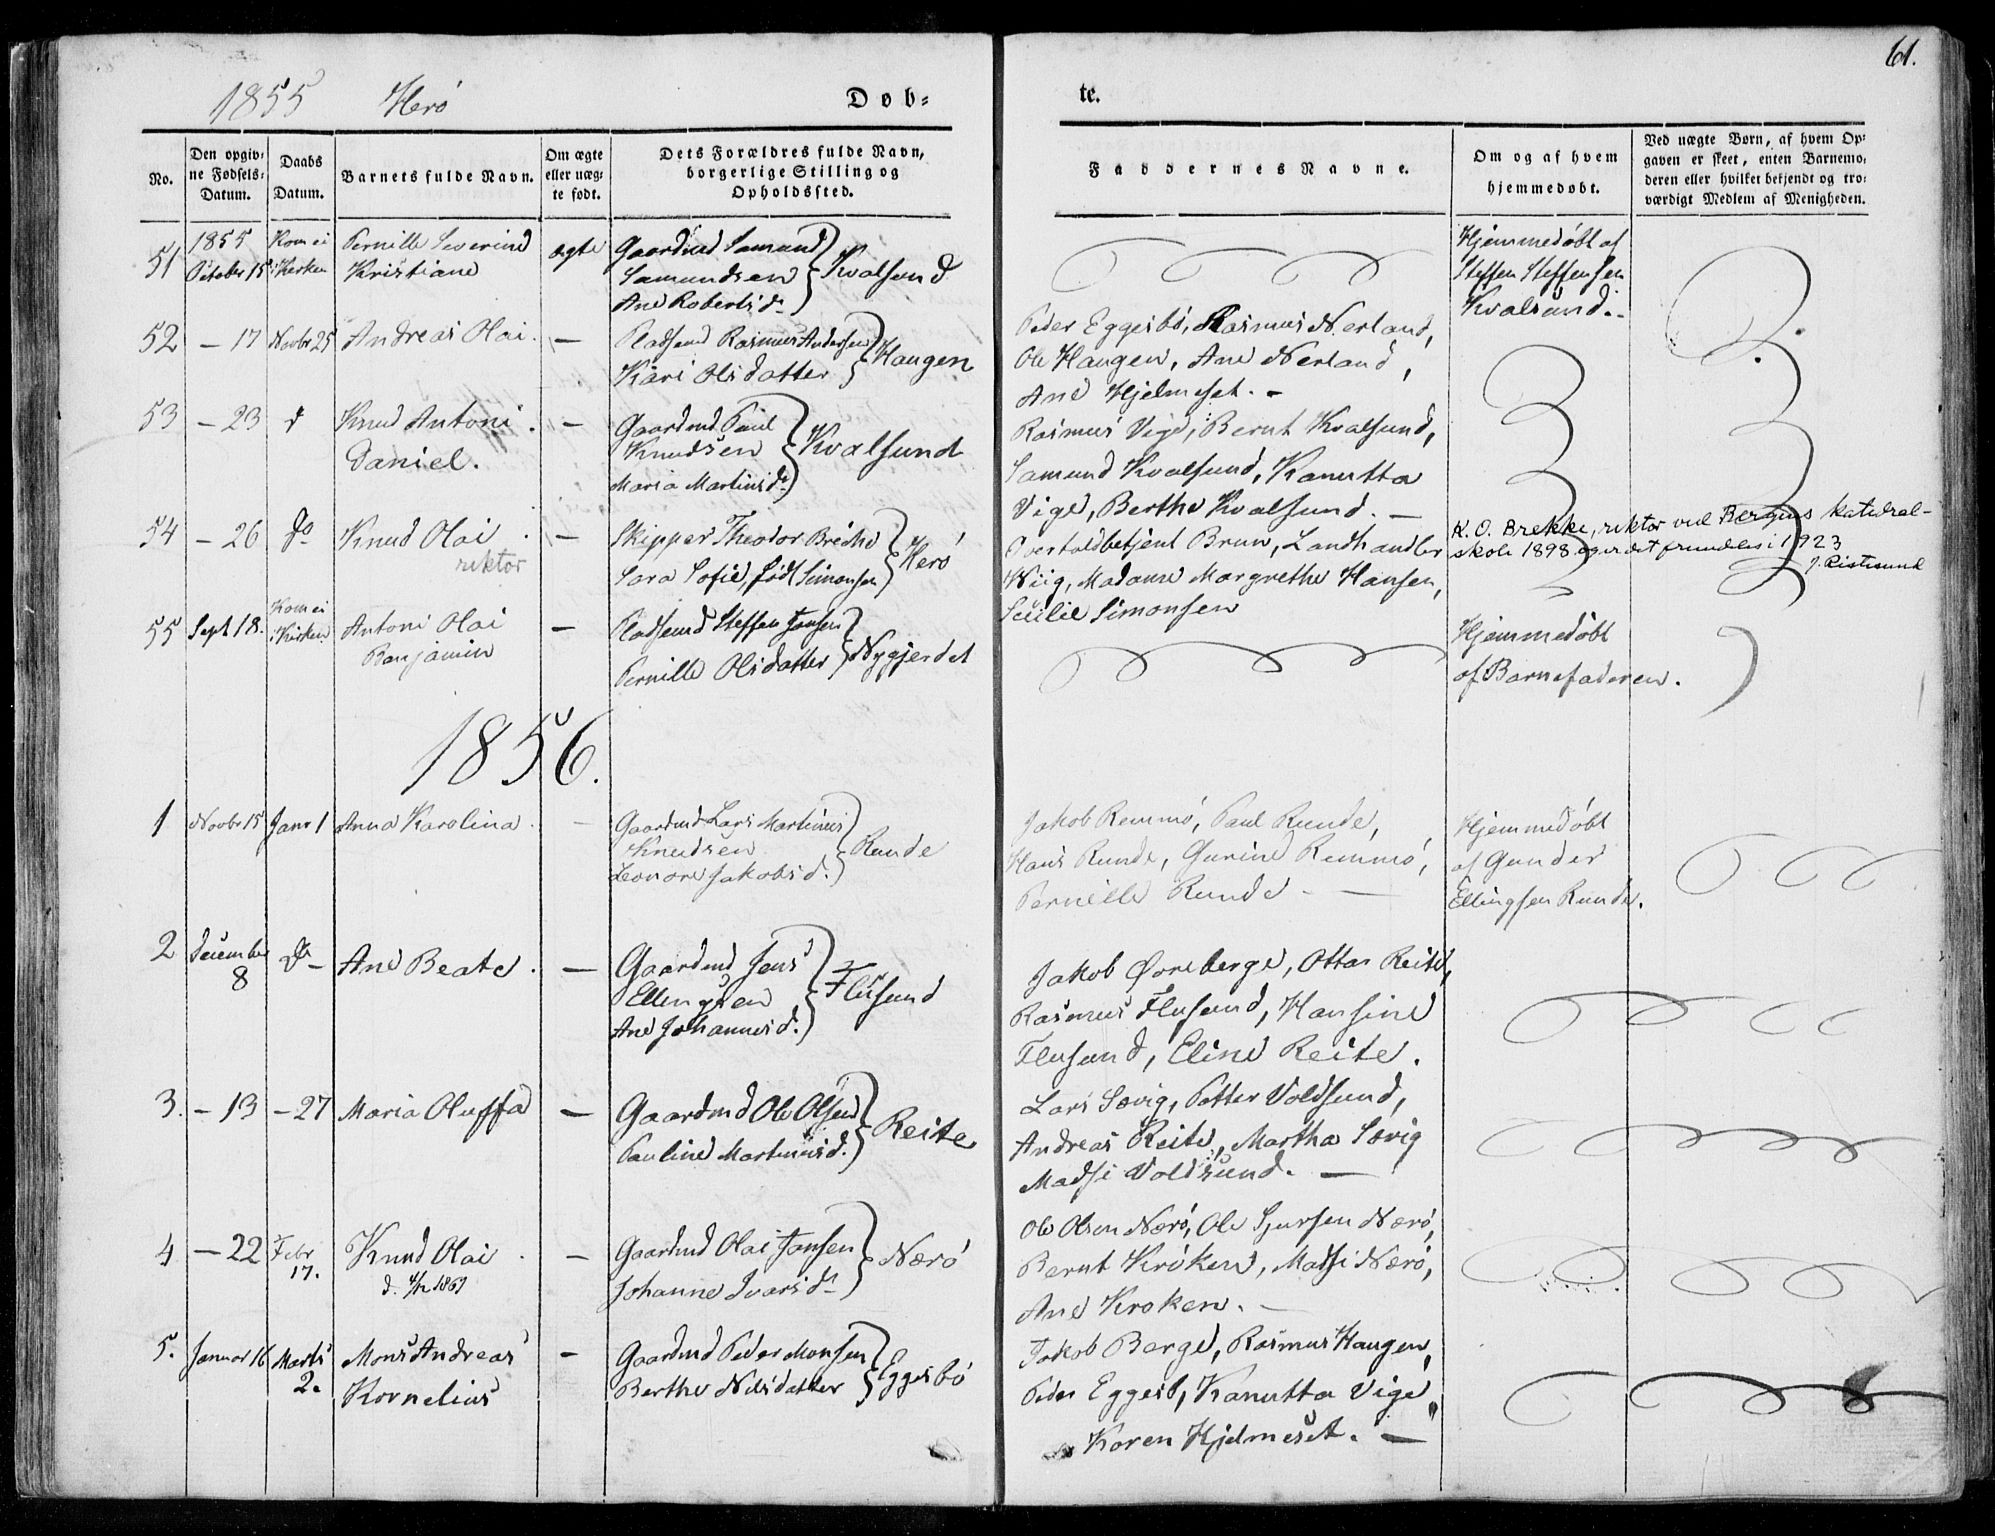 61.
1855 Herö Døb=
te.
No.
Den opgiv=
ne Fødsels=
Datum.
Daabs
Datum.
Barnets fulde Navn.
Om ægte
eller uæg=
te født.
Dets Forældres fulde Navn,
borgerlige Stilling og
Opholdssted.
Faddernes Navne.
Om og af hvem
hjemmedøbt.
Ved uægte Børn, af hvem Op=
gaven er skeet, enten Barnemo=
deren eller hvilket bekjendt og tro=
værdigt Medlem af Menigheden.
51
1855
October 15
Kom ei
i Kirken
Pernille Severine
Kristiane
ægte
Gaardmd Samund
Samundsen
Ane Robertsd.
Kvalsund
Hjemmedøbt af
Steffen Steffensen
Kvalsund.
52
- 17
Novbr 25
Andreas Olai.
—
Pladsemd Rasmus Andersen
Kari Olsdatter
Haugen
Peder Eggesbö, Rasmus Nerland,
Ole Haugen, Ane Nerland,
Ane Hjelmeset. -
53
- 23
d
Knud Antoni
Daniel.
—
Gaardmd Paul
Knudsen
Maria Martinsd.
Kvalsund
Rasmus Vige, Bernt Kvalsund,
Samund Kvalsund, Kanutta
Vige, Berthe Kvalsund. -
54
- 26
do
Knud Olai
rektor
—
Skipper Theodor Brecke
Sara Sofie, født Simonsen
Herö
Overtoldbetjent Brun, Landhandler
Wiig, Madame Margrethe Hansen,
Secilie Simonsen
K. O. Brekke, rektor ved Bergens katedral-
skole 1898 og er det fremdeles i 1923
55
Sept 18.
Kom ei
i Kirken
Antoni Olai
Benjamin
—
Pladsemd Steffen Jansen
Pernille Olsdatter
Nygjerdet
Hjemmedøbt
af Barnefaderen.
1856.
1
Novbr 15
Janr 1
Anna Karolina
—
Gaardmd Lars Martinus
Knudsen
Leonore Jakobsd.
Runde
Jakob Remmö, Paul Runde,
Hans Runde, Gurine Remmö,
Pernille Runde -
Hjemmedøbt
af Gunder
Ellingsen Runde.
2
December
8
do
Ane Beate.
—
Gaardmd Jens
Ellingsen
Ane Johannesd.
Flusund
Jakob Øvreberge, Ottar Reite,
Rasmus Flusund, Hansine
Flusund, Eline Reite.
3.
- 13
- 27
Maria Oluffa
—
Gaardmd Ole Olsen
Pauline Martinusd.
Reite
Lars Sævig, Petter Voldsund,
Andreas Reite, Martha Sævig
Madsi Voldsund. —
4
- 22
Febr
17.
Knud Olai
—
Gaardmd Olai Jansen
Johanne Ivarsd
Nærö
Ole Olsen Nærö, Ole Sjursen Nærö,
Bernt Kröken, Madsi Nærö,
Ane Kroken. -
5.
Januar 16
Marts
2.
Mons Andreas
Kornelius
—
Gaardmd Peder Monsen
Berthe Nilsdatter
Eggesbö
Jakob Berge, Rasmus Haugen,
Peder Eggesb, Kanutta Vige,
Karen Hjelmeset. —